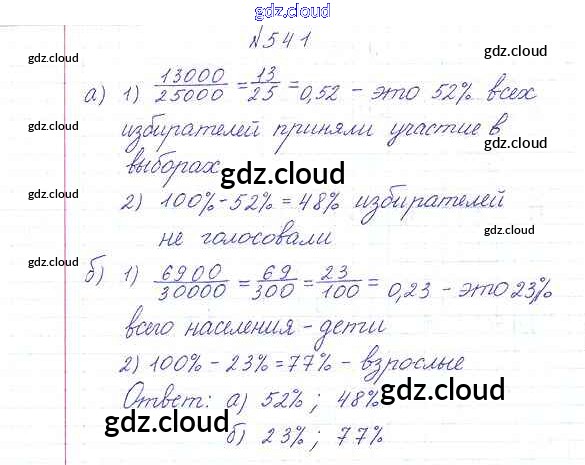 gdz.cloud
№541
gdz.cloud gdz.cloud
а) 1) 13000/25000 = 13/25 = 0,52 – это 52% всех
gdz.cloud gdz.cloud
избирателей приняли участие в
gdz.cloud
выборах
gdz.cloud
gdz.cloud
2) 100% - 52% = 48% избирателей
gdz.cloud
не голосовали
gdz.cloud
б) 1) 6900/30000 = 69/300 = 23/100 = 0,23 – это 23%
gdz.cloud gdz.cloud
всего населения - дети
gdz.cloud
2) 100% - 23% = 77% - взрослые
gdz.cloud
Ответ: а) 52% ; 48%
gdz.cloud
gdz.cloud
б) 23% ; 77%